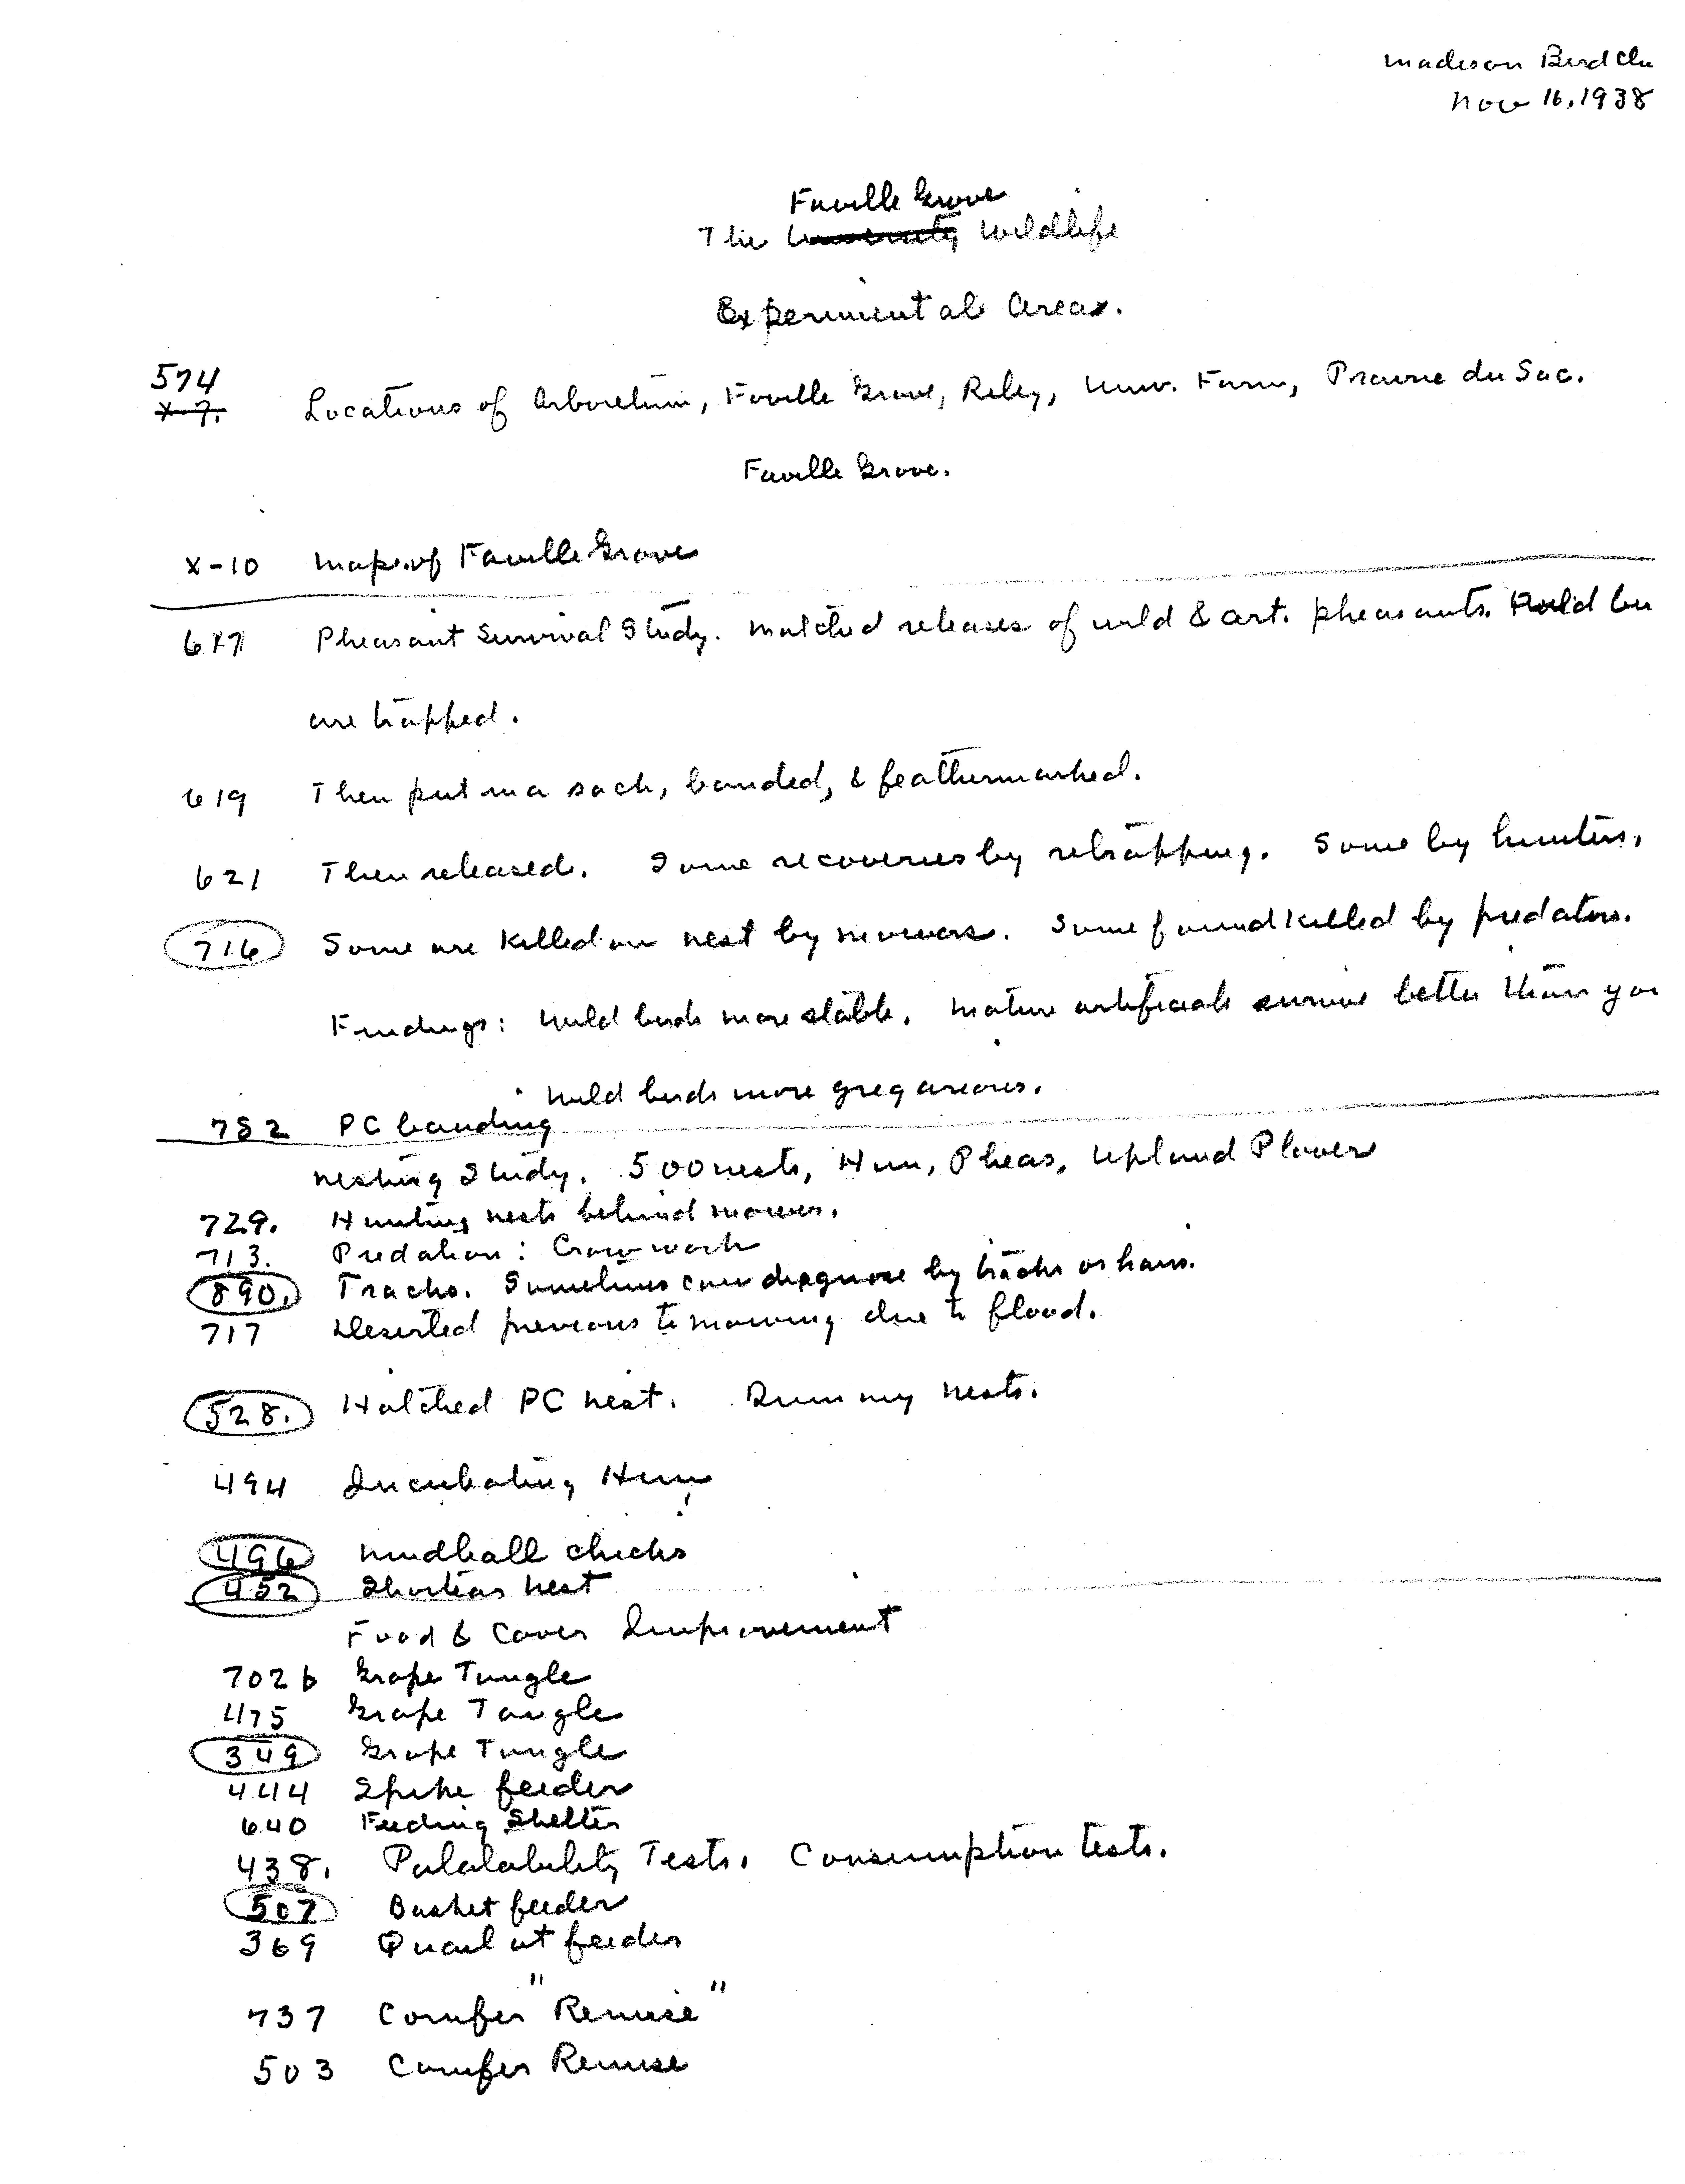 Madison Bird Clu
Nov 16, 1938
Faville Grove
The University Wildlife
Experimental Areas.
574
X-7.
Locations of Arboretum, Faville Grove, Riley, Univ. Farm, Prairie du Sac.
Faville Grove.
X-10 Map of Faville Grove
617 Pheasant Survival Study. Matched releases of wild & art. pheasants. Wild bir
are trapped.
619 Then put in a sack, banded, & feathermarked.
621 Then released. Some recoveries by retrapping. Some by hunters.
716 Some are killed on nest by mowers. Some found killed by predators.
Findings: Wild birds more stable. Mature artificials survive better than you
Wild birds more gregarious.
752 PC banding
Nesting Study. 500 nests, Hun, Pheas, Upland Plover
729. Hunting nests behind mower.
713. Predation: Crow work
890. Tracks. Sometimes can diagnose by tracks or hairs.
717 Deserted previous to mowing due to flood.
528. Hatched PC nest. Dummy nests.
494 Incubating Hun
496 Mudball chicks
452 Shortear nest
Food & Cover Improvement
702b Grape Tangle
475 Grape Tangle
349 Grape Tangle
444 Spike feeder
640 Feeding Shelter
438. Palatability Tests. Consumption tests.
507 Basket feeder
369 Quail at feeder
737 Conifer "Remise"
503 Conifer Remise